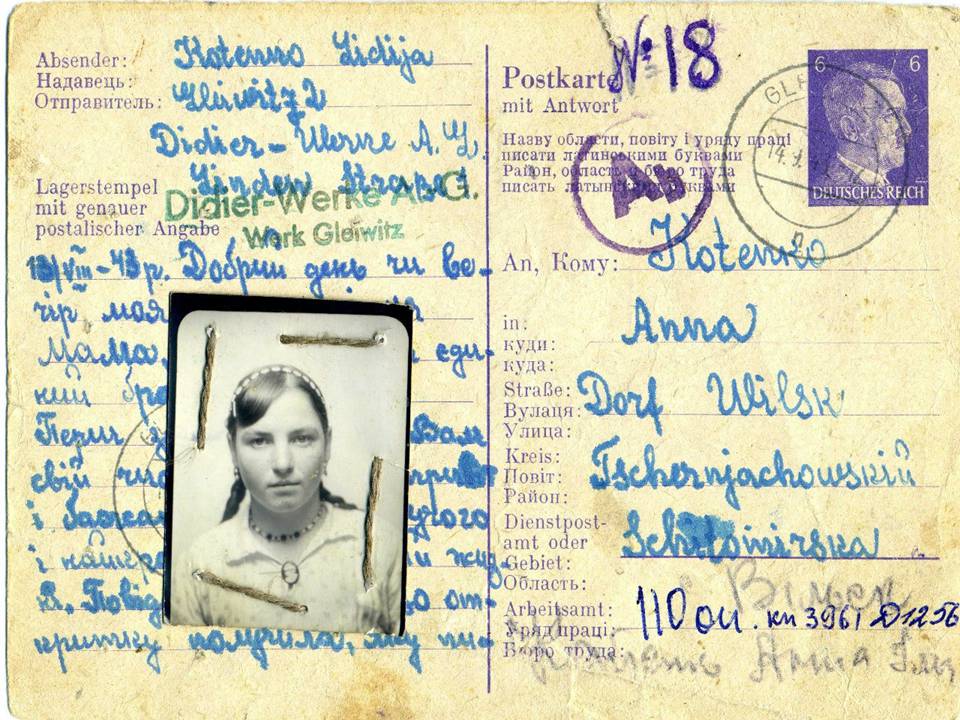 Absender:
Надавець:
Отправитель:
Kotenno Lidija
Gleiwitz 2
Didier-Werne A.G.
Linden Straße
Lagerstempel
mit genauer
postalischer Angabe
Didier-Werke A.-G.
Werk Gleiwitz
13/VIII-43 р. Добрий день чи ве-
чір моя
Мама, єди-
ний бра
Перш Вам
свій
і бажа
і найкра
я. Пові от-
критку получила, яку пи-
№ 18
Postkarte
mit Antwort
Назву области, повіту і уряду праці
писати латинськими буквами
Район, область и бюро труда
писать латынскими буквами
6 6
DEUTSCHES REICH
An, Кому: Kotenko
in:
куди:
куда:
Anna
Straße:
Вулаця:
Улица:
Dorf Wilsk
Kreis:
Повіт:
Район:
Tschernjachowskiй
Dienstpost-
amt oder
Gebiet:
Область:
Schitomirska
Вільск
Arbeitsamt:
Уряд праці:
Бюро труда:
110 оп. кн 396 / D1256
Анна